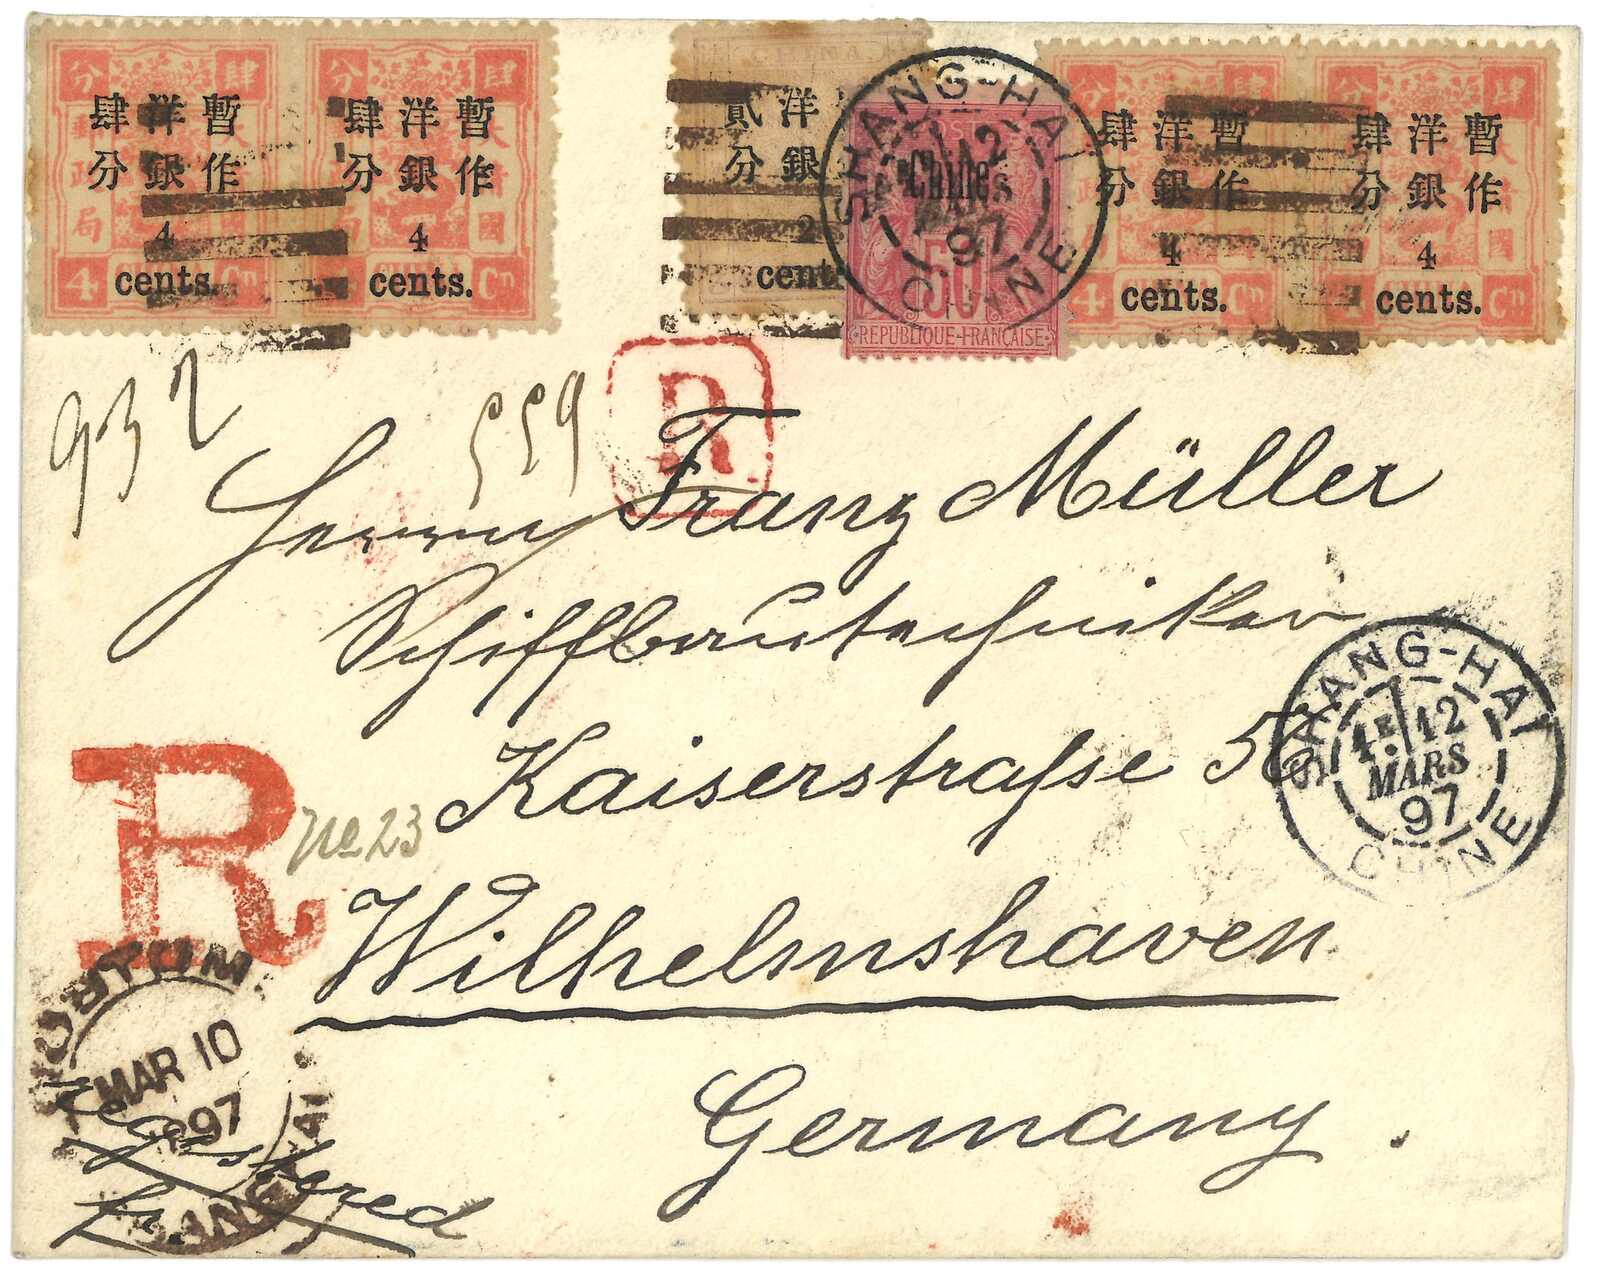 暫作洋銀肆分
4
cents.
暫作洋銀肆分
4
cents.
CHINA
洋銀貳分
2
cent
Chine
50
REPUBLIQUE-FRANÇAISE
暫作洋銀肆分
4
cents.
暫作洋銀肆分
4
cents.
SHANG-HAI
12
MARS
97
CHINE
932
559
R
Herrn Franz Müller
Schiffbautechniker
Kaiserstraſse 56
Wilhelmshaven
Germany.
SHANG-HAI
1E 12
MARS
97
CHINE
R
No 23
MAR 10
97
Registered